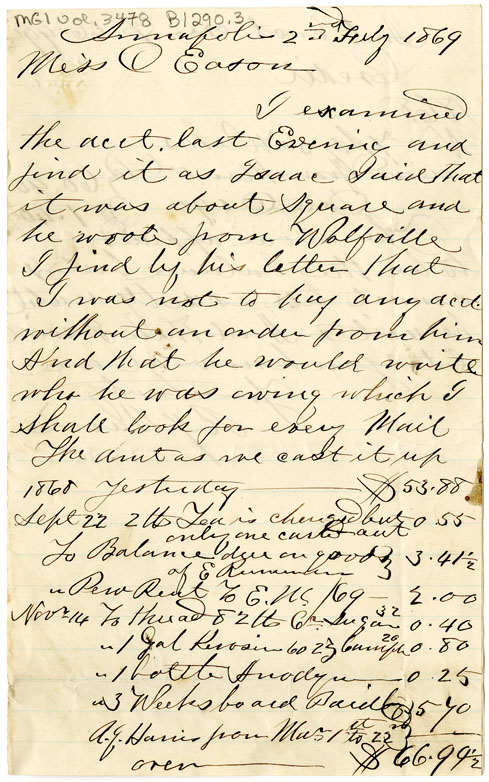 MG1 Vol. 3478 B1290.3
Annapolis 23rd July 1869
Miss O Eason
I examined
the acct. last Evening and
find it as Isaac Said that
it was about Square and
he wrote from Wolfville
I find by his letter that
I was not to pay any acct
without an order from him
And that he would write
who he was owing which I
shall look for every Mail
The amt as we cast it up
1868 Yesterday $53.88
Sept 22 2 lb Tea is charged but 0.55
only one carried out
To Balance due on goods 3.41½
of E
" Pew Rent To E. 69 - 2.00
Novr 14 To thread 8 2 lb Sugar 32 0.40
" 1 gal Kerosin 60 0.80
" 1 bottle Anodyn 0.25
" 3 Weeks board Paid 5.70
A. J. Harris from to 22nd
over $66.99½